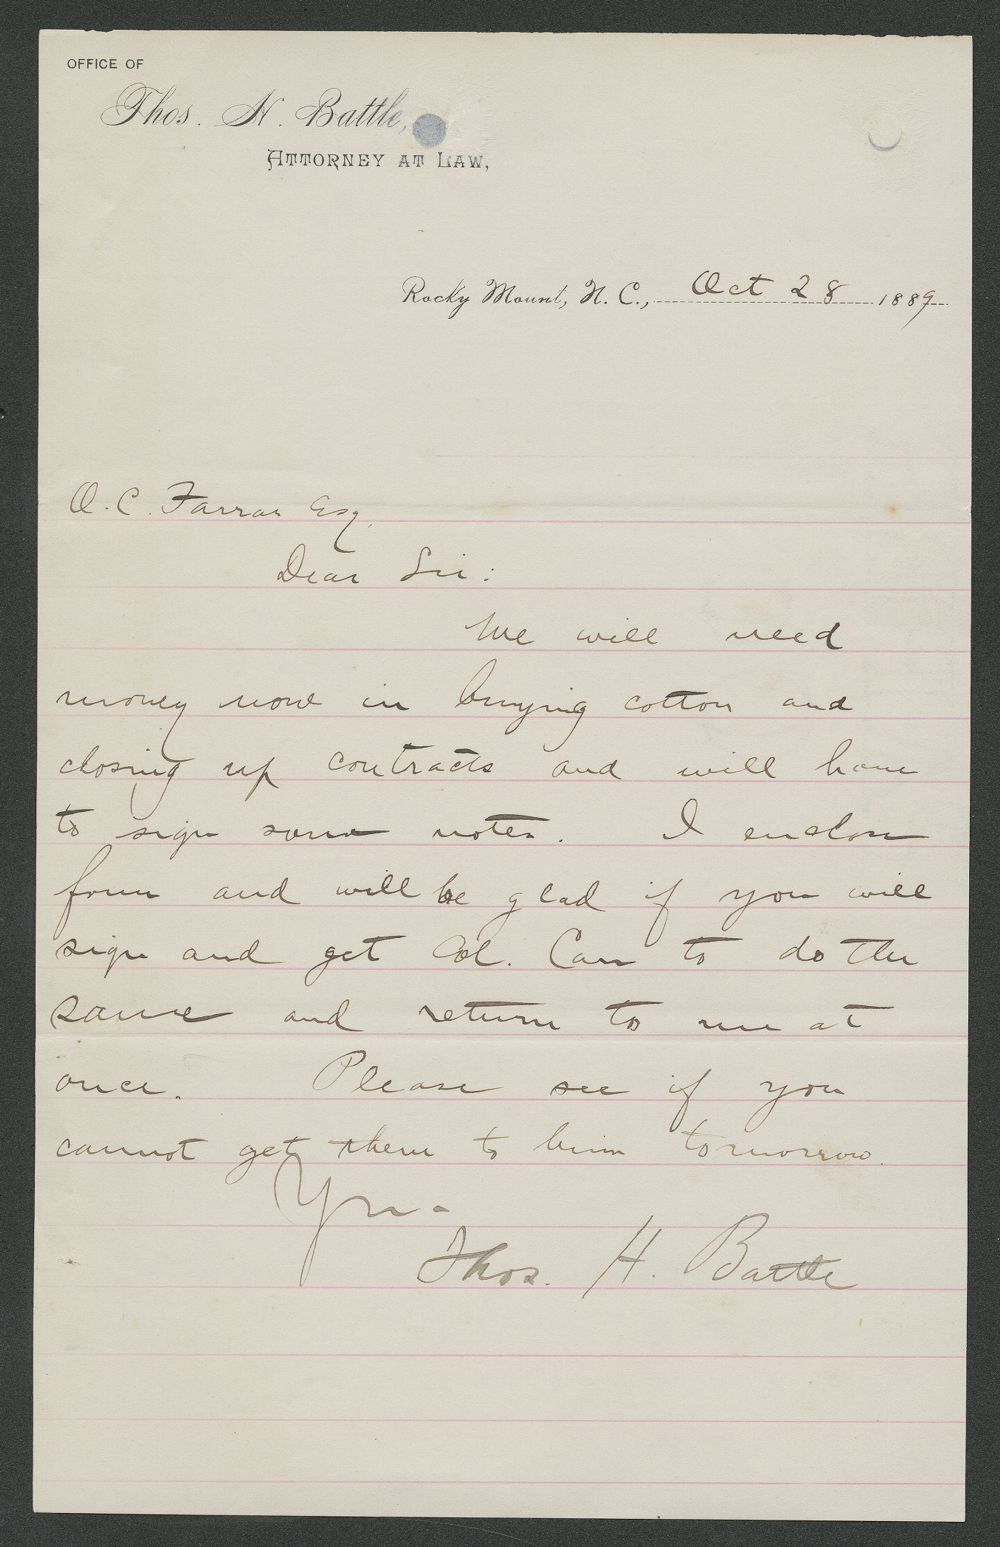 OFFICE OF
Thos. H. Battle,
ATTORNEY AT LAW,
Rocky Mount, N. C., Oct 28 1889
O. C. Farrar Esq.
Dear Sir:
We will need
money now in buying cotton and
closing up contracts and will have
to sign some notes. I enclose
form and will be glad if you will
sign and get Col. Carr to do the
same and return to me at
once. Please see if you
cannot get them to him tomorrow.
Yrs
Thos. H. Battle